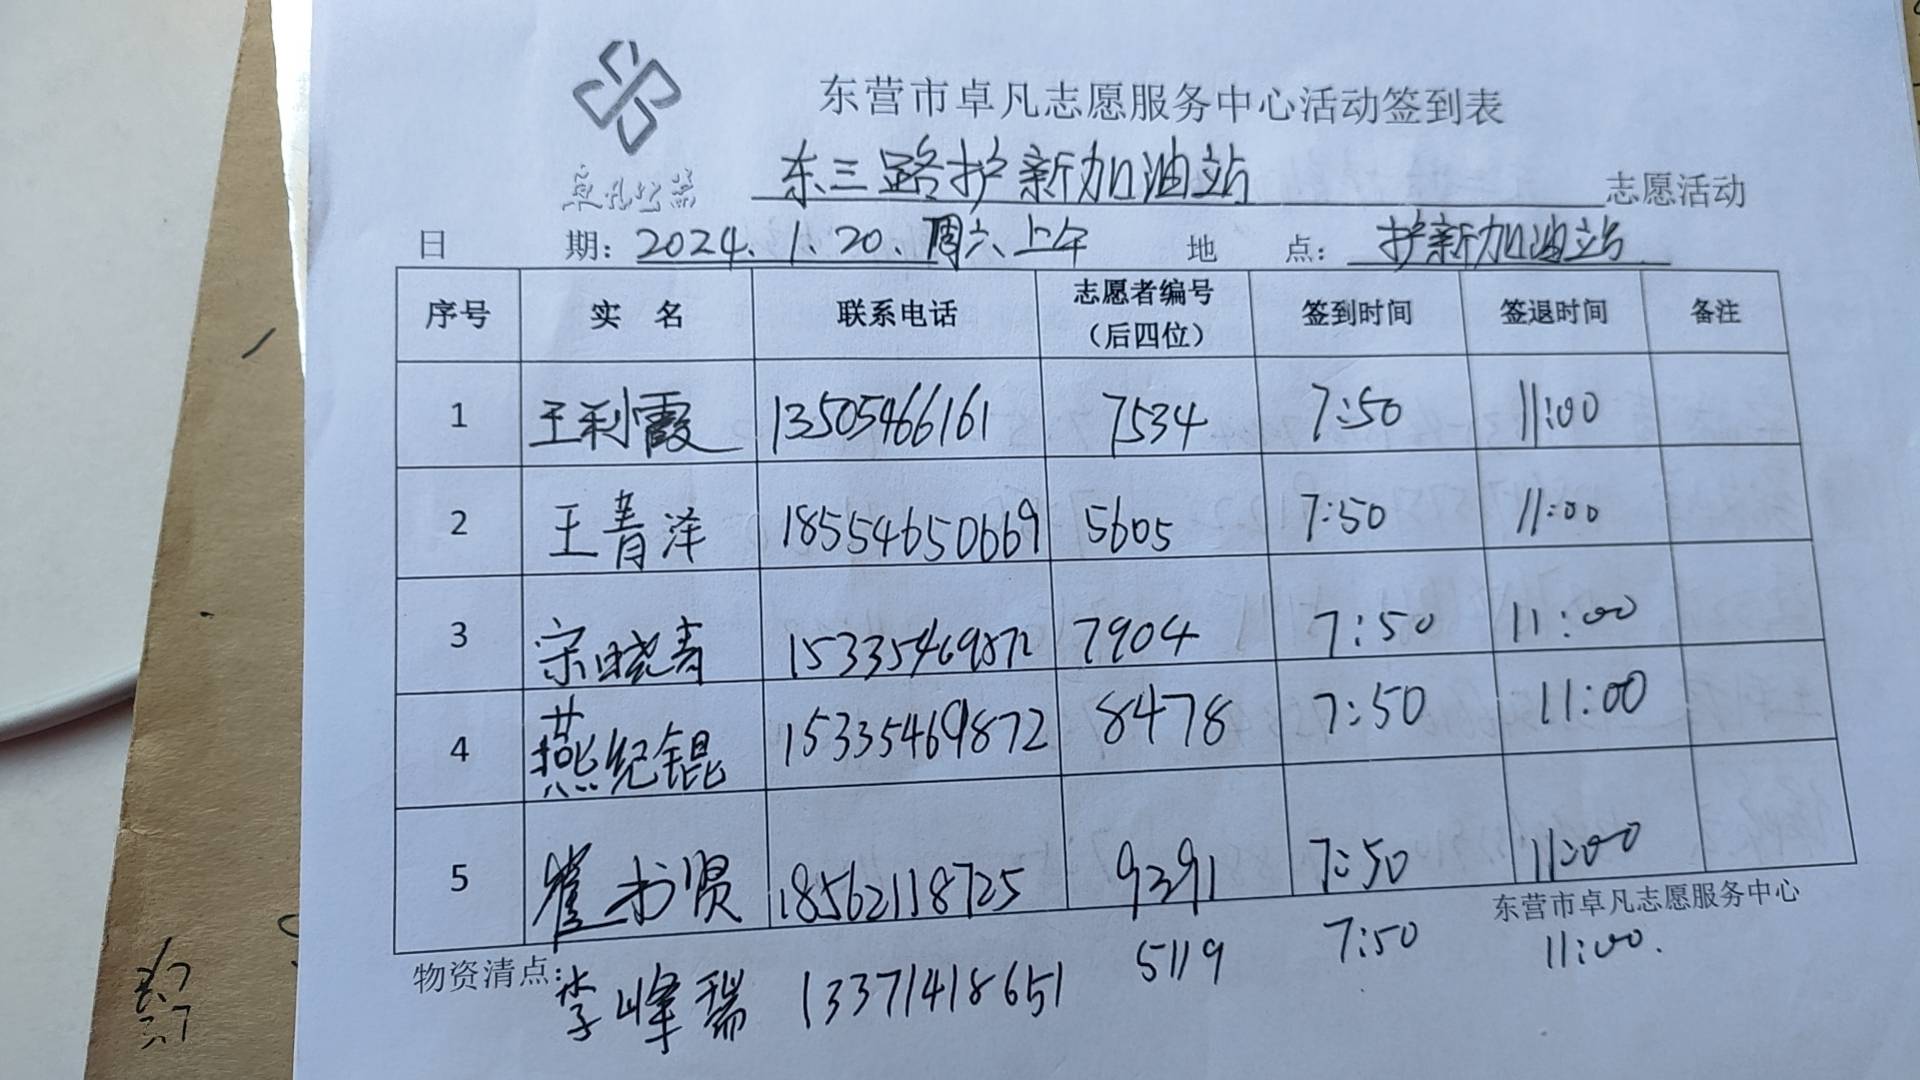 东营市卓凡志愿服务中心活动签到表
卓凡公益
东三路护新加油站 志愿活动
日 期: 2024.1.20.周六上午 地 点: 护新加油站
序号 实 名 联系电话 志愿者编号（后四位） 签到时间 签退时间 备注
1 王利霞 13505466161 7534 7:50 11:00
2 王青泽 18554650669 5605 7:50 11:00
3 宋晓青 15335469872 7904 7:50 11:00
4 燕纪锟 15335469872 8478 7:50 11:00
5 崔书贤 18562118725 9391 7:50 11:00
东营市卓凡志愿服务中心
物资清点:
李峰瑞 13371418651 5119 7:50 11:00.